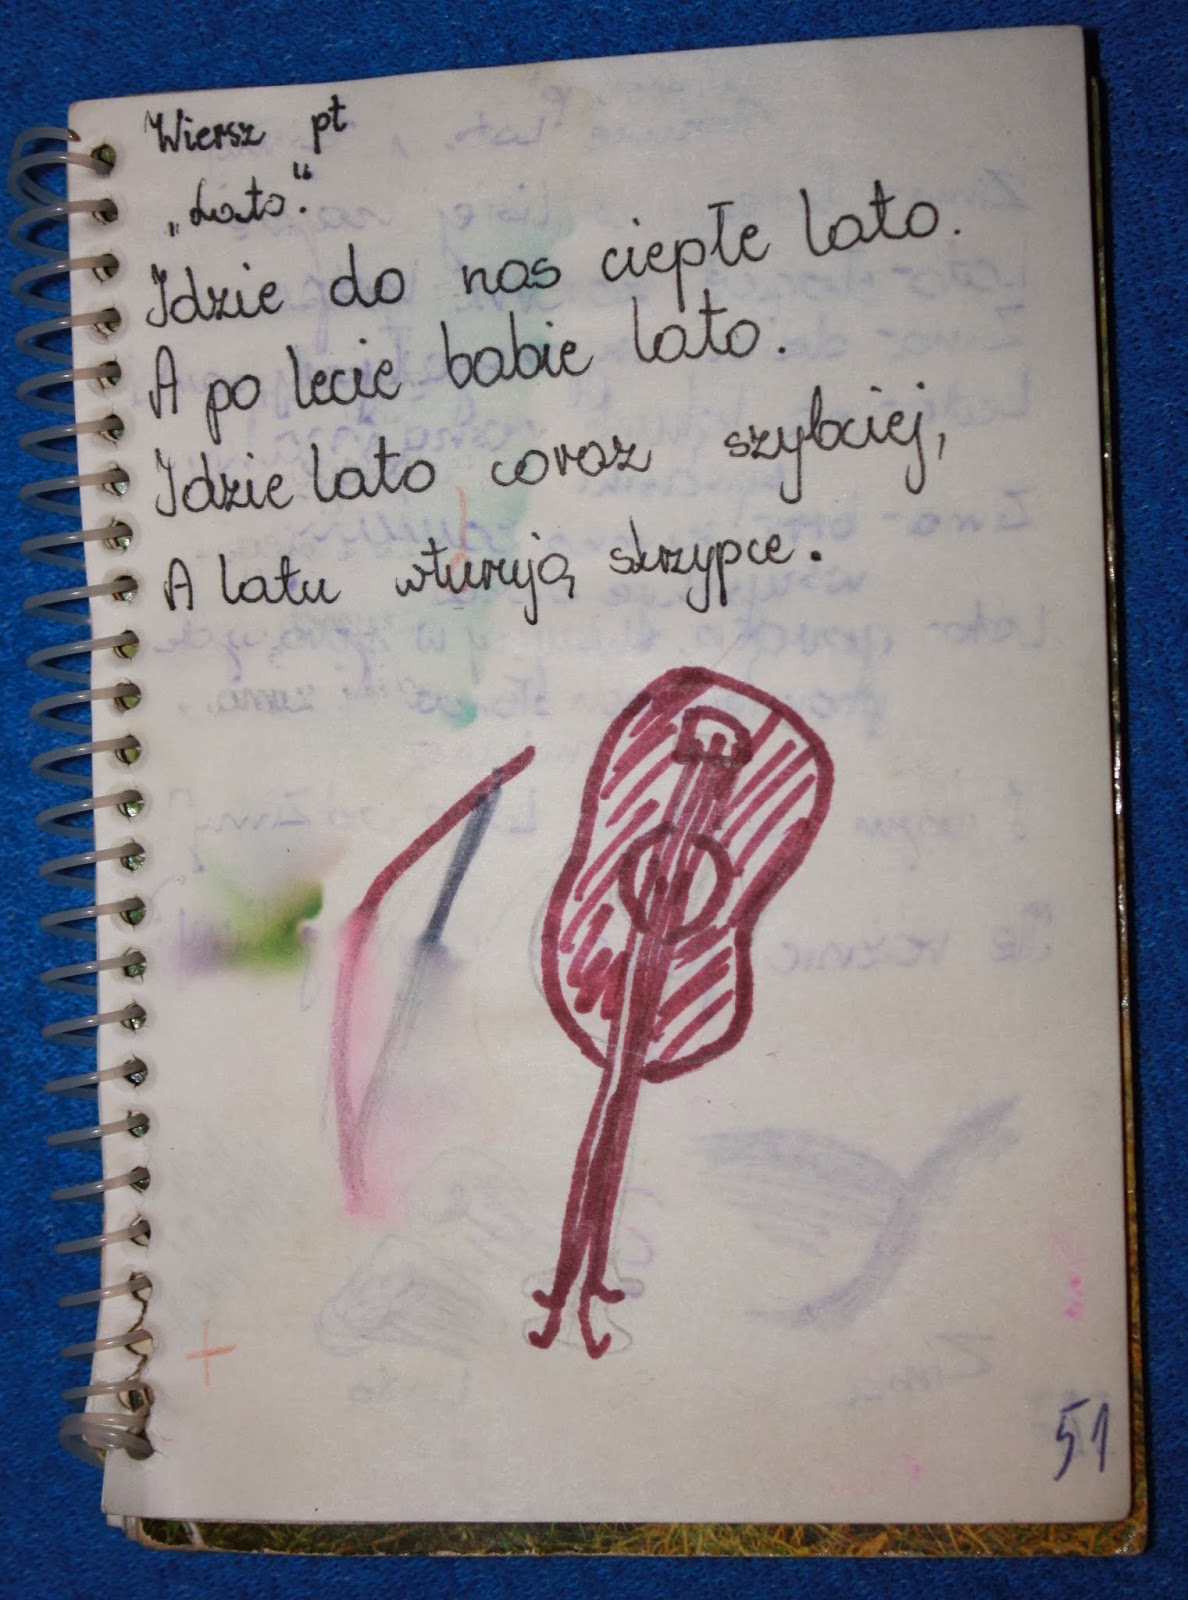 Wiersz pt
„Lato."
Idzie do nas ciepłe lato.
A po lecie babie lato.
Idzie lato coraz szybciej,
A latu wturują skrzypce.
51